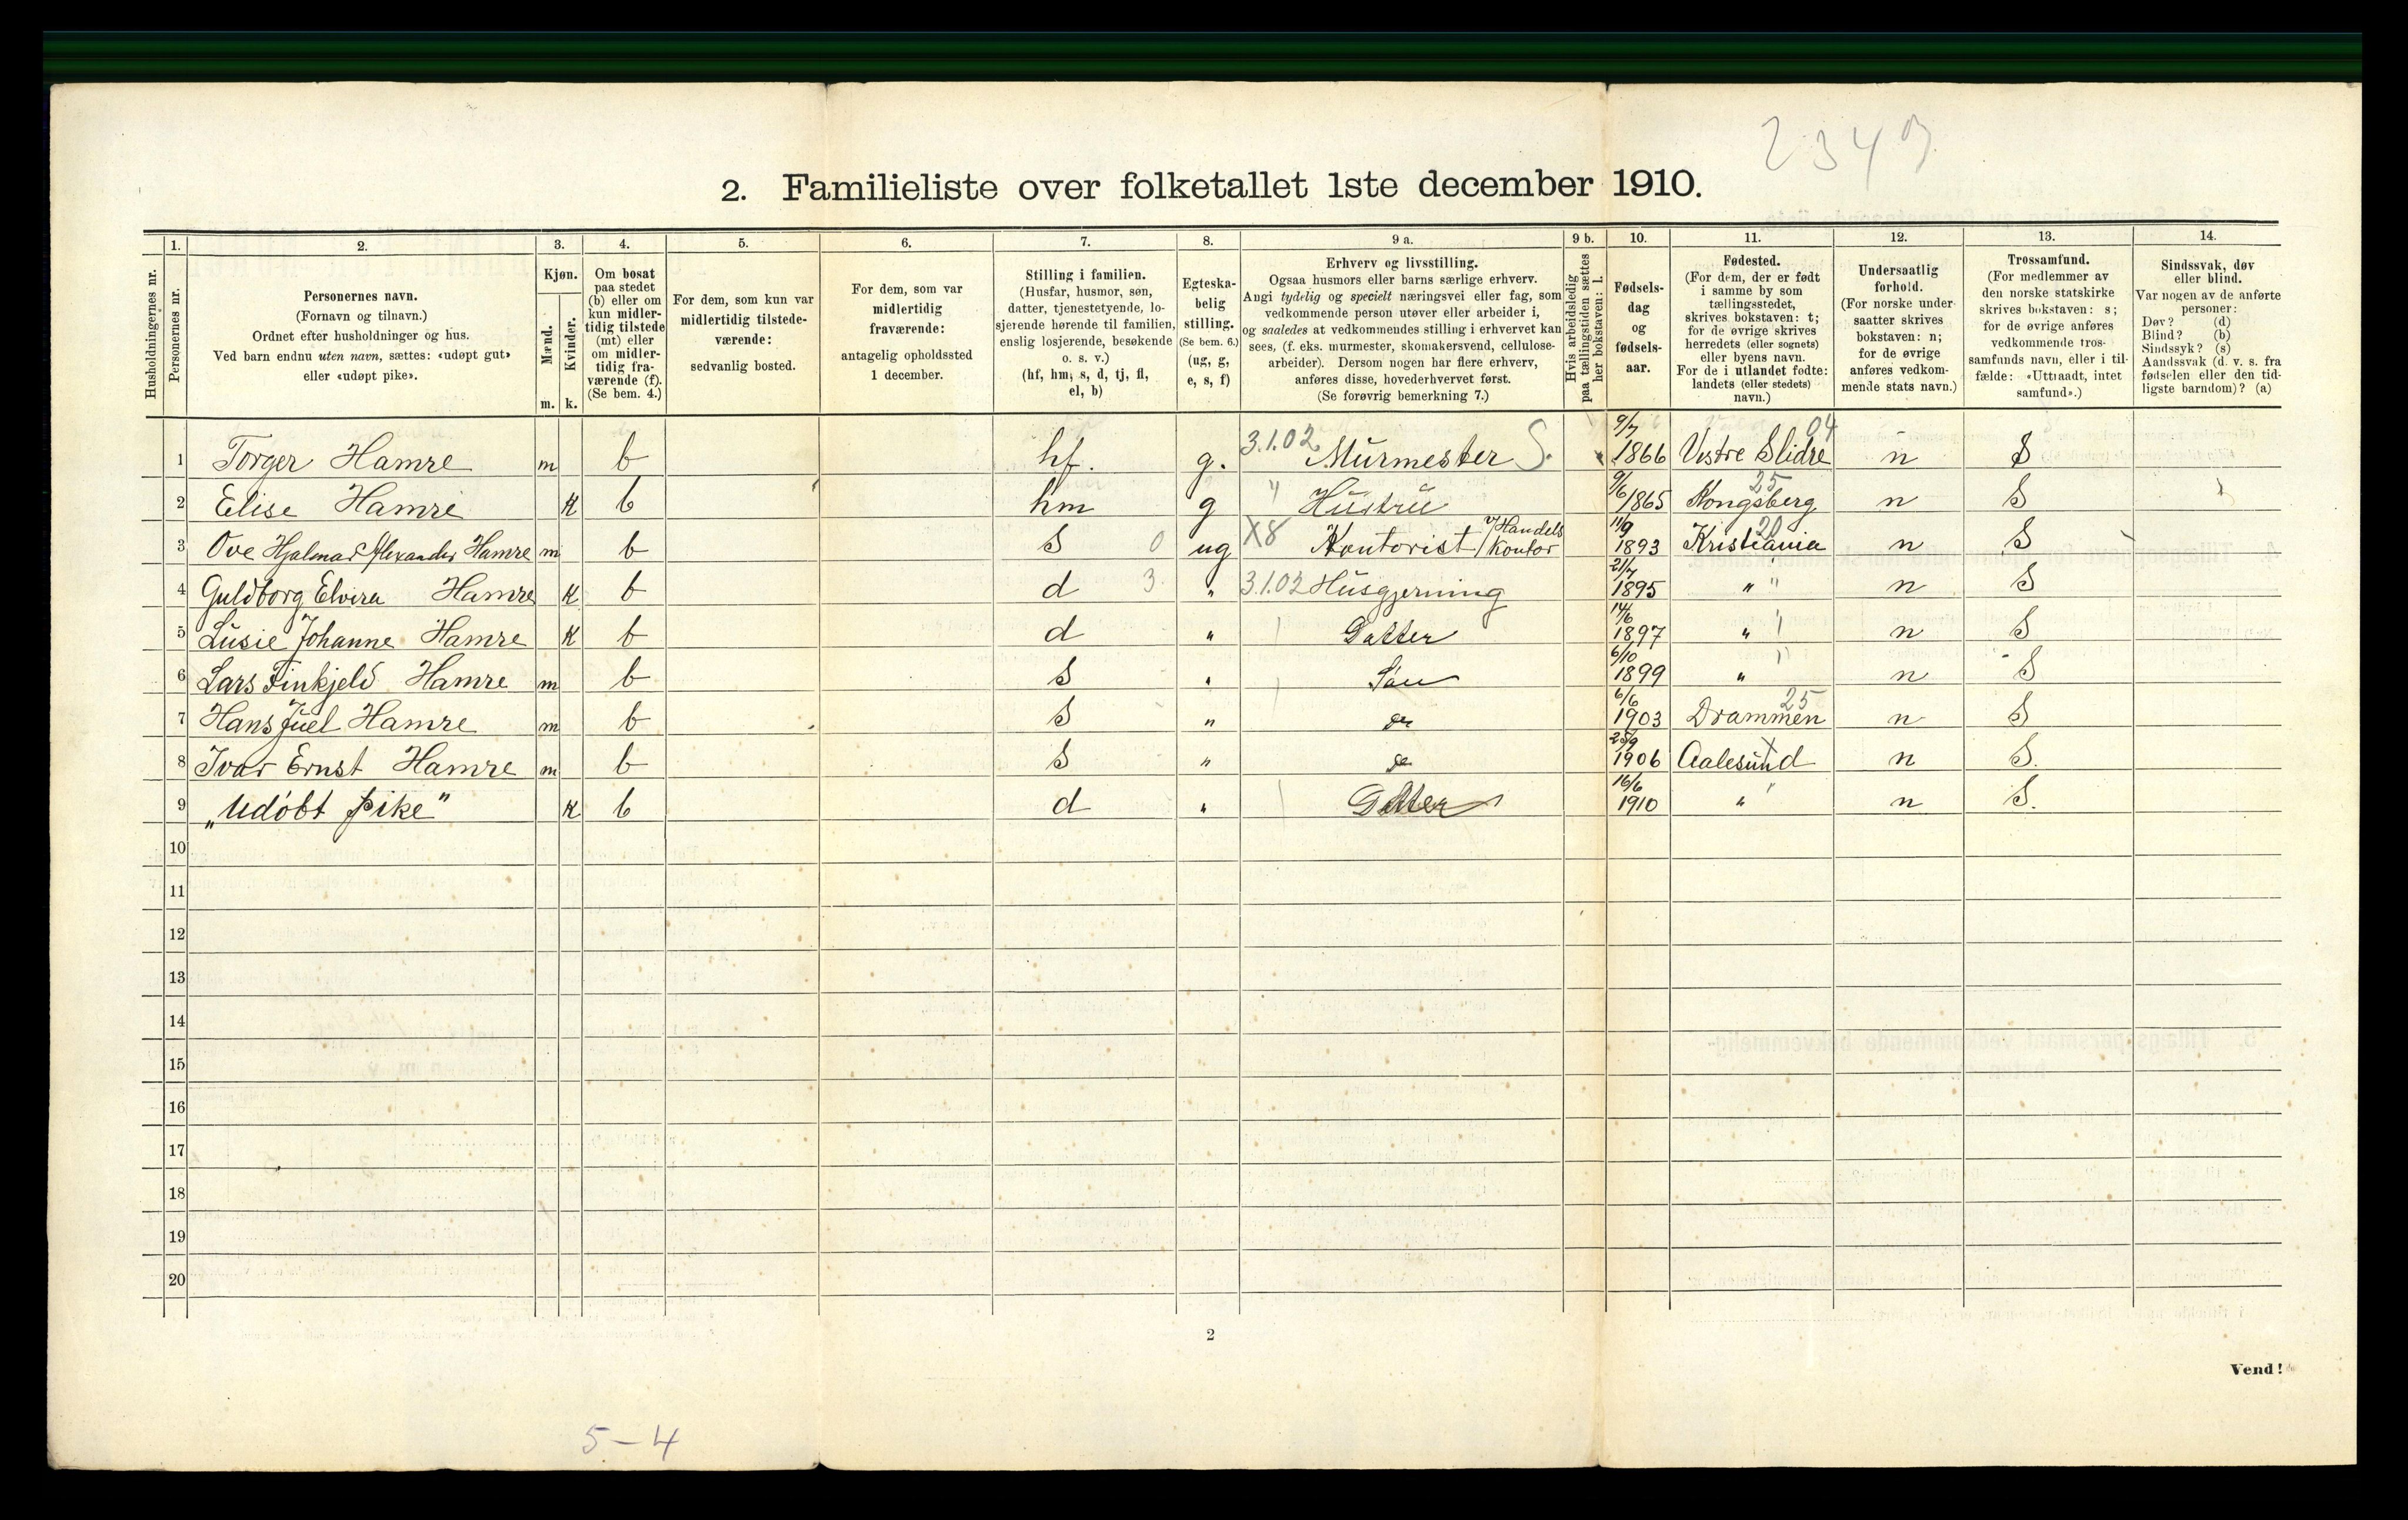 2347
2. Familieliste over folketallet 1ste december 1910.
1. 2. 3. 4. 5. 6. 7. 8. 9 a. 9 b. 10. 11. 12. 13. 14.
Husholdningernes nr.
Personernes nr.
Personernes navn.
(Fornavn og tilnavn.)
Ordnet efter husholdninger og hus.
Ved barn endnu uten navn, sættes: «udøpt gut»
eller «udøpt pike».
Kjøn.
Mænd.
Kvinder.
m. k.
Om bosat
paa stedet
(b) eller om
kun midler-
tidig tilstede
(mt) eller
om midler-
tidig fra-
værende (f).
(Se bem. 4.)
For dem, som kun var
midlertidig tilstede-
værende:
sedvanlig bosted.
For dem, som var
midlertidig
fraværende:
antagelig opholdssted
1 december.
Stilling i familien.
(Husfar, husmor, søn,
datter, tjenestetyende, lo-
sjerende hørende til familien,
enslig losjerende, besøkende
o. s. v.)
(hf, hm, s, d, tj, fl,
el, b)
Egteska-
belig
stilling.
(Se bem. 6.)
(ug, g,
e, s, f)
Erhverv og livsstilling.
Ogsaa husmors eller barns særlige erhverv.
Angi tydelig og specielt næringsvei eller fag, som
vedkommende person utøver eller arbeider i,
og saaledes at vedkommendes stilling i erhvervet kan
sees, (f. eks. murmester, skomakersvend, cellulose-
arbeider). Dersom nogen har flere erhverv,
anføres disse, hovederhvervet først.
(Se forøvrig bemerkning 7.)
Hvis arbeidsledig
paa tællingstiden sættes
her bokstaven: l.
Fødsels-
dag
og
fødsels-
aar.
Fødested.
(For dem, der er født
i samme by som
tællingsstedet,
skrives bokstaven: t;
for de øvrige skrives
herredets (eller sognets)
eller byens navn.
For de i utlandet fødte:
landets (eller stedets)
navn.)
Undersaatlig
forhold.
(For norske under-
saatter skrives
bokstaven: n;
for de øvrige
anføres vedkom-
mende stats navn.)
Trossamfund.
(For medlemmer av
den norske statskirke
skrives bokstaven: s;
for de øvrige anføres
vedkommende tros-
samfunds navn, eller i til-
fælde: «Uttraadt, intet
samfund».)
Sindssvak, døv
eller blind.
Var nogen av de anførte
personer:
Døv? (d)
Blind? (b)
Sindssyk? (s)
Aandssvak (d. v. s. fra
fødselen eller den tid-
ligste barndom)? (a)
1 Torger Hamre m b hf. g. 3.1.02 Murmester S. 9/7 1866 Vestre Slidre 04 n S
2 Elise Hamre k b hm g " Hustru 9/6 1865 Kongsberg 25 n S
3 Ove Hjalmar Alexander Hamre m b S 0 ug X8 Kontorist v/Handels Kontor 11/9 1893 Kristiania 20 n S
4 Guldborg Elvira Hamre k b d 3 " 3.1.02 Husgjerning 21/7 1895 " " n S
5 Lusie Johanne Hamre k b d " Datter 14/6 1897 " n S
6 Lars Finkjeld Hamre m b S " Søn 6/10 1899 " n S
7 Hans Juel Hamre m b S " do 6/6 1903 Drammen 25 n S
8 Ivar Ernst Hamre m b S " do 25/9 1906 Aalesund X n S.
9 „Udöbt pike" k b d " Datter 16/6 1910 " n S.
10
11
12
13
14
15
16
17
18
19
20
2
Vend!
5-4